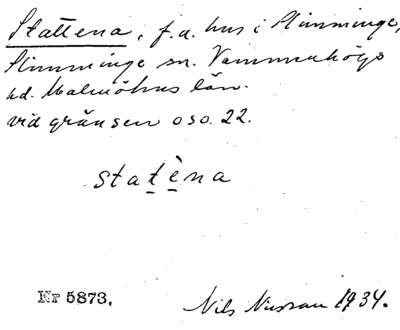 Stattena, f.d. hus i Slimminge,
Slimminge sn. Vemmenhögs
hd. Malmöhus län.
vid gränsen oso. 22.
statèna
Nr 5873.
Nils 1934.